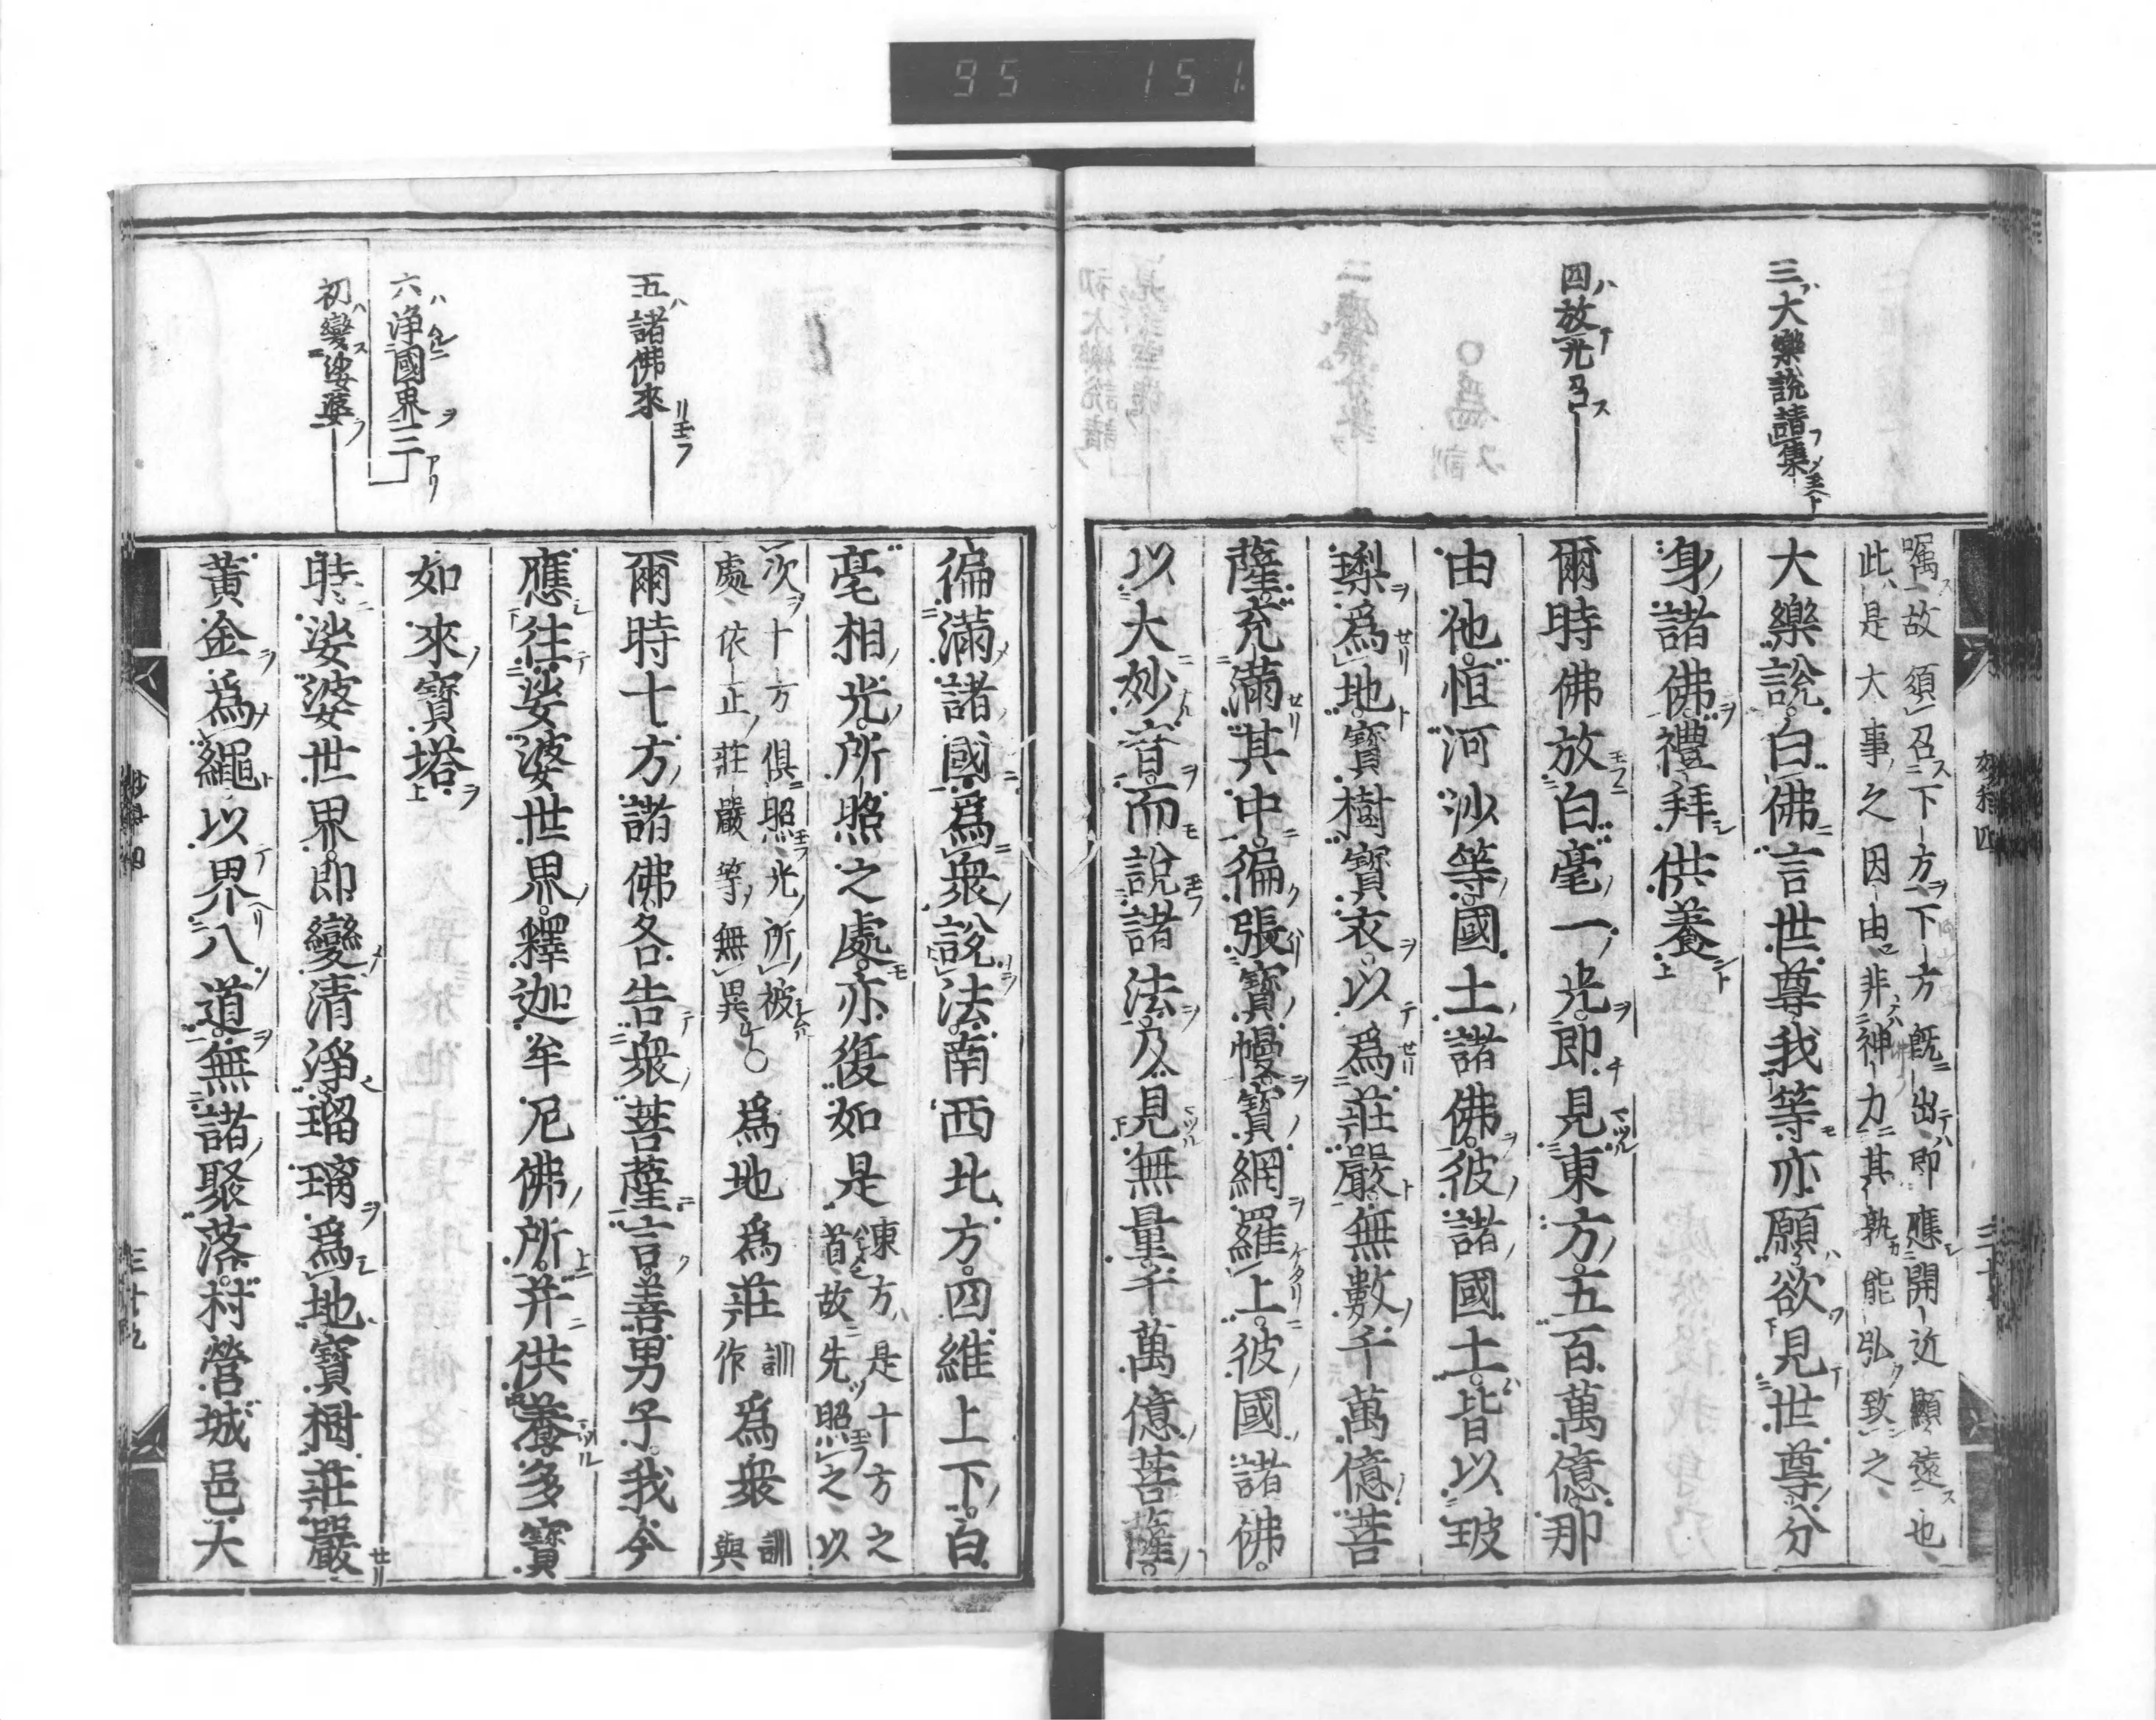 95 151
三大樂說請集
四放光召
囑故須召下方下方既出即應開近顯遠也
此是大事之因由非神力其孰能弘致之
大樂說白佛言世尊我等亦願欲見世尊分
身諸佛禮拜供養
爾時佛放白毫一光即見東方五百萬億那
由他恒河沙等國土諸佛彼諸國土皆以玻
瓈爲地寶樹寶衣以爲莊嚴無數千萬億菩
薩充滿其中徧張寶幔寶網羅上彼國諸佛
以大妙音而說諸法及見無量千萬億菩薩
五諸佛來
六淨國界三
初變娑婆
徧滿諸國爲衆說法南西北方四維上下白
毫相光所照之處亦復如是東方是十方之
首故先照之以
次十方俱照光所被
處依正莊嚴等無異〇爲地爲莊訓
作爲衆訓
與
爾時十方諸佛各告衆菩薩言善男子我今
應往娑婆世界釋迦牟尼佛所并供養多寶
如來寶塔
時娑婆世界即變清淨瑠璃爲地寶樹莊嚴
黃金爲繩以界八道無諸聚落村營城邑大